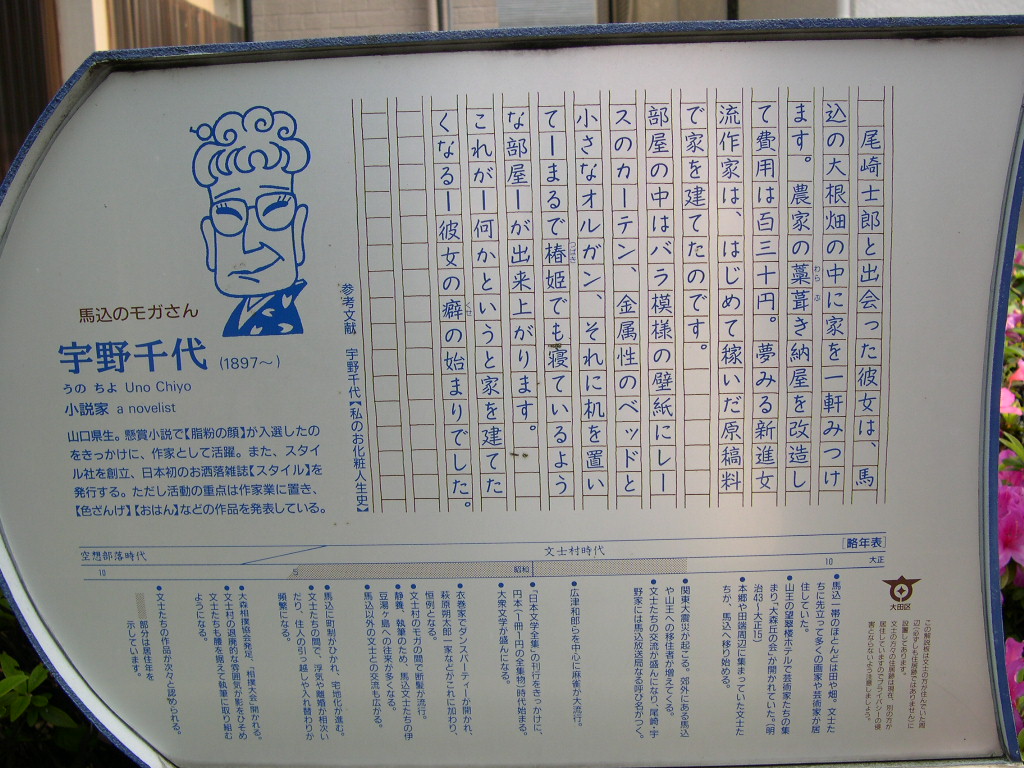 尾崎士郎と出会った彼女は、馬
込の大根畑の中に家を一軒みつけ
ます。農家の藁葺き納屋を改造し
わら ぶ
て費用は百三十円。夢みる新進女
流作家は、はじめて稼いだ原稿料
で家を建てたのです。
部屋の中はバラ模様の壁紙にレー
スのカーテン、金属性のベッドと
小さなオルガン、それに机を置い
てーまるで椿姫でも寝ているよう
つばき
な部屋ーが出来上がります。
これがー何かというと家を建てた
くなるー彼女の癖の始まりでした。
くせ
参考文献 宇野千代【私のお化粧人生史】
馬込のモガさん
宇野千代 (1897〜)
うの ちよ Uno Chiyo
小説家 a novelist
山口県生。懸賞小説で【脂粉の顔】が入選したの
をきっかけに、作家として活躍。また、スタイ
ル社を創立、日本初のお洒落雑誌【スタイル】を
発行する。ただし活動の重点は作家業に置き、
【色ざんげ】【おはん】などの作品を発表している。
[略年表]
文士村時代
空想部落時代
大正
10
昭和
5
10
大田区
この解説板は文士の方が住んでいた周
辺(必ずしも住居跡ではありません)に
設置してあります。
文士の方々の住居跡は現在、別の方が
居住していますのでプライバシーの侵
害とならないよう注意しましょう。
●馬込一帯のほとんどは田や畑。文士た
ちに先立って多くの画家や芸術家が居
住していた。
●山王の望翠楼ホテルで芸術家たちの集
まり「大森丘の会」が開かれていた。[明
治43〜大正15]
●本郷や田端周辺に集まっていた文士た
ちが、馬込へ移り始める。
●関東大震災が起こる。郊外にある馬込
や山王への移住者が増えてくる。
●文士たちの交流が盛んになり、尾崎・宇
野家には馬込放送局なる呼び名がつく。
●広津和郎らを中心に麻雀が大流行。
●「日本文学全集」の刊行をきっかけに、
円本(一冊一円の全集物)時代始まる。
●大衆文学が盛んになる。
●衣巻家でダンスパーティーが開かれ、
萩原朔太郎一家などがこれに加わり、
恒例となる。
●文士村のモガの間で断髪が流行。
●静養、執筆のため、馬込文士たちの伊
豆湯ヶ島への往来が多くなる。
●馬込以外の文士との交流も広がる。
●馬込に町制がひかれ、宅地化が進む。
●文士たちの間で、浮気や離婚が相次い
だり、住人の引っ越しや入れ替わりが
頻繁になる。
●大森相撲協会発足。「相撲大会」が開かれる。
●文士村の退廃的な雰囲気が影をひそめ
文士たちも腰を据えて執筆に取り組む
ようになる。
●文士たちの作品が次々と認められる。
部分は居住年を、
示しています。